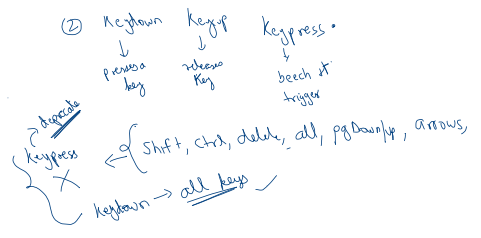 ② Keydown Keyup Keypress.
↓ ↓ ↓
presses a releases beech st
key Key trigger
deprecate
Keypress ← { Shift, Ctrl, delete, all, pgDown/up, arrows,
X
Keydown → all keys ✓